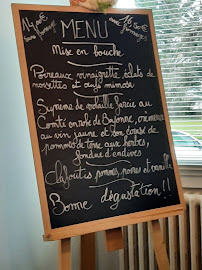 14,00€ sans fromage
MENU
avec fromage 16,50€
Mise en bouche
Poireaux vinaigrette, éclats de
noisettes et œufs mimosa
Suprême de volaille farcie au
Comté enrobé de Bayonne, crémeuse
au vin jaune et son écrasé de
pommes de terre aux herbes,
fondue d'endives
Clafoutis pommes, poires et vanille
Bonne dégustation !!